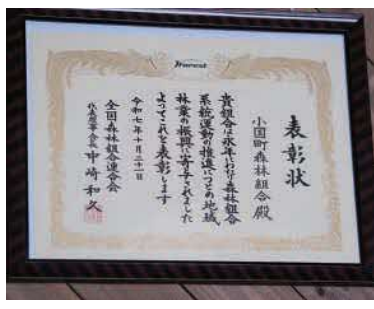 Jforest
表彰状
小国町森林組合殿
貴組合は永年にわたり森林組合
系統運動の推進につとめ地域
林業の振興に寄与されました
よってこれを表彰します
令和七年十月三十一日
全国森林組合連合会
代表理事会長 中崎和久